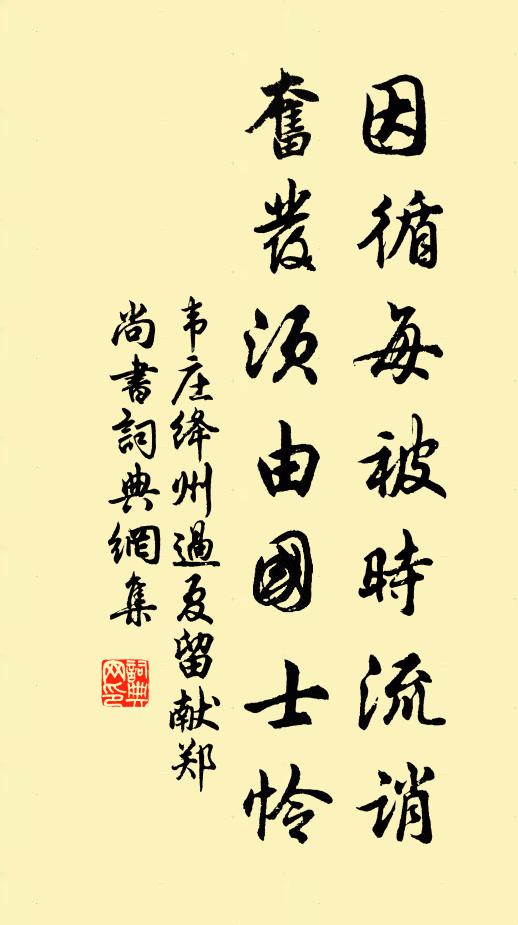 因循每被時流誚
奮發須由國士怜
韦庄绛州過夏留献郑
尚書詞典網集
詞典
网印